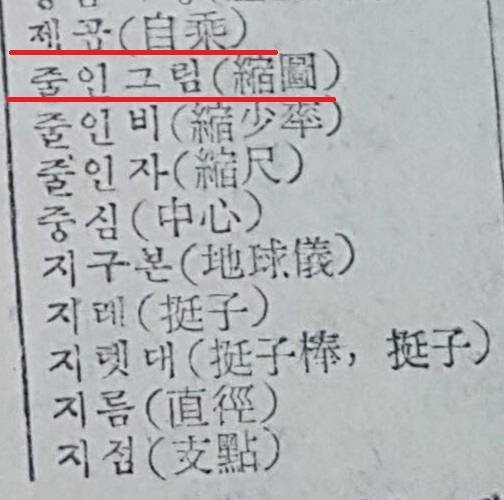 제곱(自乘)
줄인그림(縮圖)
줄인비(縮少率)
줄인자(縮尺)
중심(中心)
지구본(地球儀)
지레(挺子)
지렛대(挺子棒, 挺子)
지름(直徑)
지점(支點)